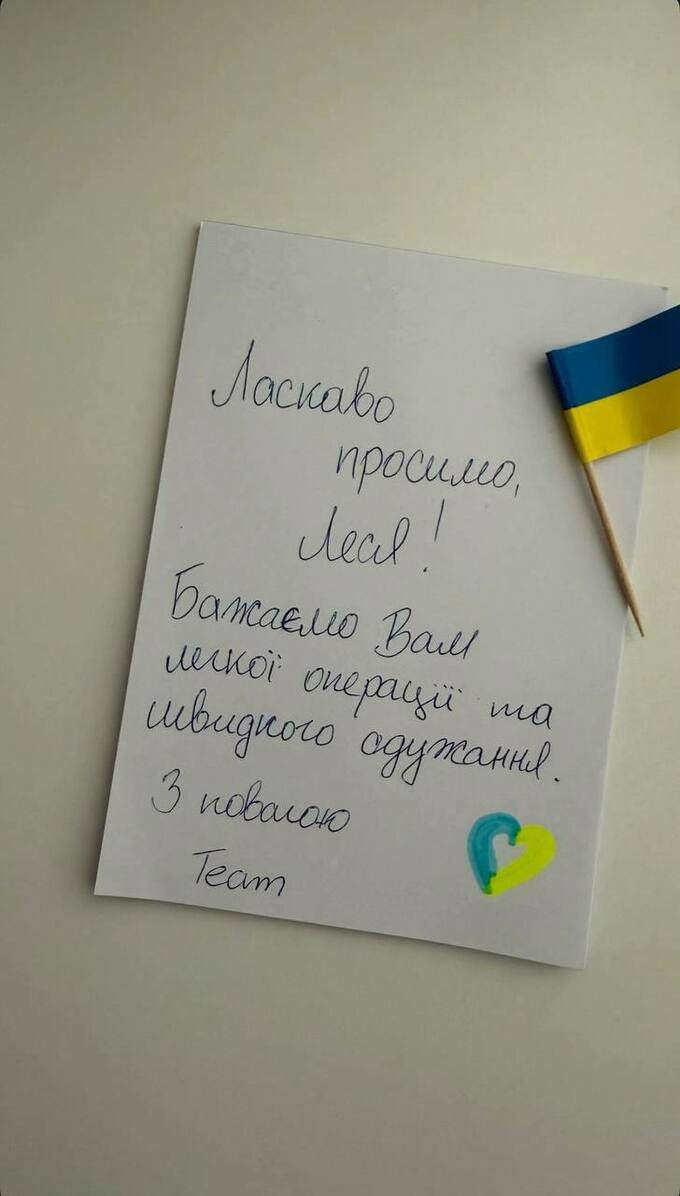 Ласкаво
просимо,
Леся!
Бажаємо Вам
легкої операції та
швидкого одужання.
З повагою
Team